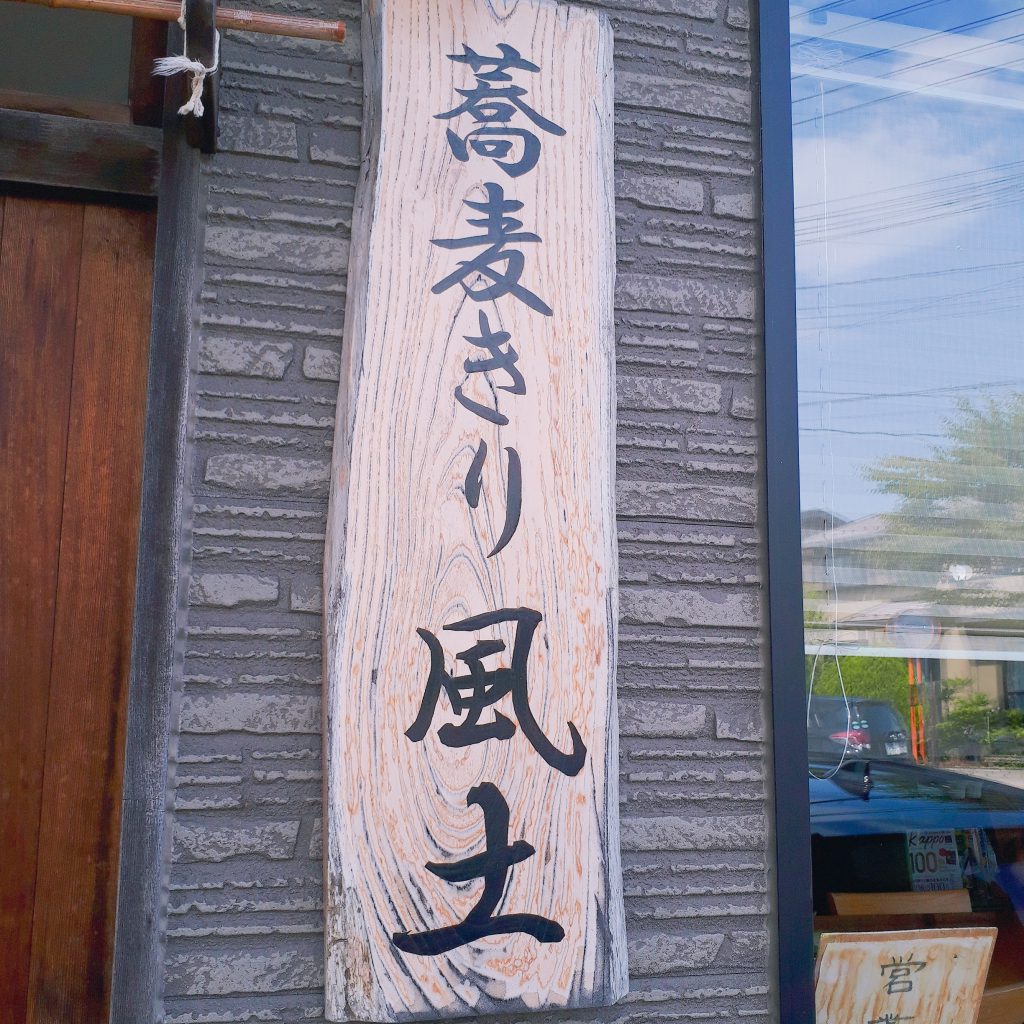 蕎麦きり 風土
Kappo
100
営